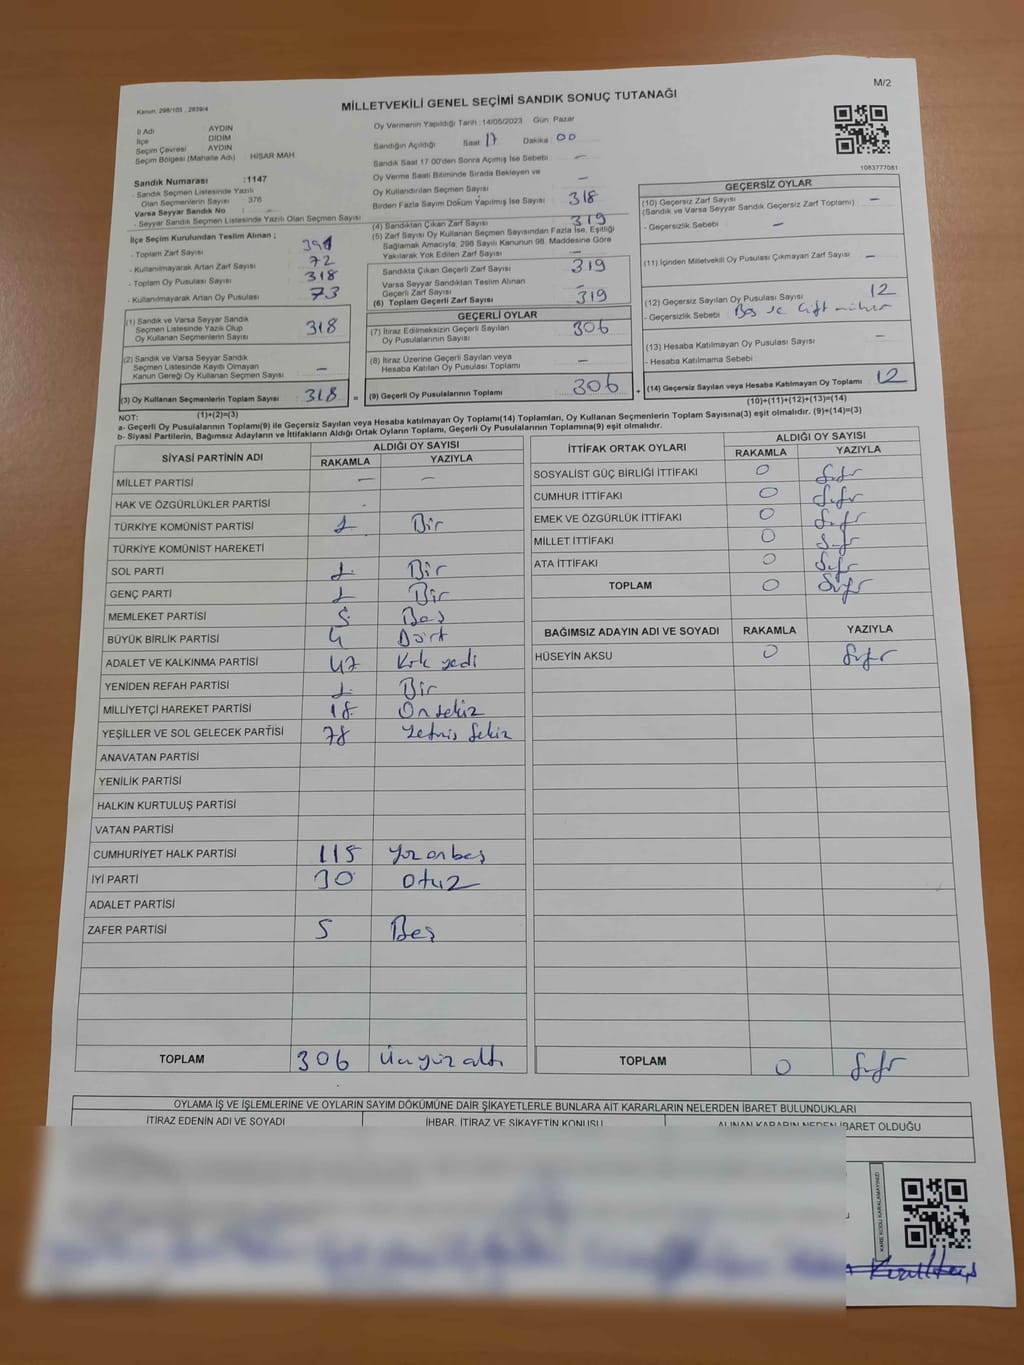 M/2
Kanun: 298/105 , 2839/4
MİLLETVEKİLİ GENEL SEÇİMİ SANDIK SONUÇ TUTANAĞI
İl Adı AYDIN
İlçe DİDİM
Seçim Çevresi AYDIN
Seçim Bölgesi (Mahalle Adı) HİSAR MAH
Sandık Numarası :1147
- Sandık Seçmen Listesinde Yazılı
Olan Seçmenlerin Sayısı 376
Varsa Seyyar Sandık No : -
- Seyyar Sandık Seçmen Listesinde Yazılı Olan Seçmen Sayısı
İlçe Seçim Kurulundan Teslim Alınan ;
- Toplam Zarf Sayısı
- Kullanılmayarak Artan Zarf Sayısı 72
- Toplam Oy Pusulası Sayısı 318
- Kullanılmayarak Artan Oy Pusulası 73
(1) Sandık ve Varsa Seyyar Sandık
Seçmen Listesinde Yazılı Olup
Oy Kullanan Seçmenlerin Sayısı 318
(2) Sandık ve Varsa Seyyar Sandık
Seçmen Listesinde Kayıtlı Olmayan
Kanun Gereği Oy Kullanan Seçmen Sayısı -
(3) Oy Kullanan Seçmenlerin Toplam Sayısı 318 =
(1)+(2)=(3)
Oy Vermenin Yapıldığı Tarih :14/05/2023 Gün: Pazar
Sandığın Açıldığı Saat 17 Dakika 00
Sandık Saat 17:00'den Sonra Açılmış İse Sebebi -
Oy Verme Saati Bitiminde Sırada Bekleyen ve
Oy Kullandırılan Seçmen Sayısı -
Birden Fazla Sayım Döküm Yapılmış İse Sayısı 318
(4) Sandıktan Çıkan Zarf Sayısı 319
(5) Zarf Sayısı Oy Kullanan Seçmen Sayısından Fazla İse, Eşitliği
Sağlamak Amacıyla, 298 Sayılı Kanunun 98. Maddesine Göre
Yakılarak Yok Edilen Zarf Sayısı -
Sandıkta Çıkan Geçerli Zarf Sayısı 319
Varsa Seyyar Sandıktan Teslim Alınan
Geçerli Zarf Sayısı -
(6) Toplam Geçerli Zarf Sayısı 319
GEÇERLİ OYLAR
(7) İtiraz Edilmeksizin Geçerli Sayılan
Oy Pusulalarının Sayısı 306
(8) İtiraz Üzerine Geçerli Sayılan veya
Hesaba Katılan Oy Pusulası Toplamı -
(9) Geçerli Oy Pusulalarının Toplamı 306 +
1083777081
GEÇERSİZ OYLAR
(10) Geçersiz Zarf Sayısı
(Sandık ve Varsa Seyyar Sandık Geçersiz Zarf Toplamı) -
- Geçersizlik Sebebi : -
(11) İçinden Milletvekili Oy Pusulası Çıkmayan Zarf Sayısı -
(12) Geçersiz Sayılan Oy Pusulası Sayısı 12
- Geçersizlik Sebebi Boş ve çift mühür
(13) Hesaba Katılmayan Oy Pusulası Sayısı -
- Hesaba Katılmama Sebebi
(14) Geçersiz Sayılan veya Hesaba Katılmayan Oy Toplamı 12
(10)+(11)+(12)+(13)=(14)
NOT:
a- Geçerli Oy Pusulalarının Toplamı(9) ile Geçersiz Sayılan veya Hesaba katılmayan Oy Toplamı(14) Toplamları, Oy Kullanan Seçmenlerin Toplam Sayısına(3) eşit olmalıdır. (9)+(14)=(3)
b- Siyasi Partilerin, Bağımsız Adayların ve İttifakların Aldığı Ortak Oyların Toplamı, Geçerli Oy Pusulalarının Toplamına(9) eşit olmalıdır.
SİYASİ PARTİNİN ADI ALDIĞI OY SAYISI
RAKAMLA YAZIYLA
MİLLET PARTİSİ - -
HAK VE ÖZGÜRLÜKLER PARTİSİ
TÜRKİYE KOMÜNİST PARTİSİ 1 Bir
TÜRKİYE KOMÜNİST HAREKETİ
SOL PARTİ 1 Bir
GENÇ PARTİ 1 Bir
MEMLEKET PARTİSİ 5 Beş
BÜYÜK BİRLİK PARTİSİ 4 Dört
ADALET VE KALKINMA PARTİSİ 47 Kırk yedi
YENİDEN REFAH PARTİSİ 1 Bir
MİLLİYETÇİ HAREKET PARTİSİ 18 Onsekiz
YEŞİLLER VE SOL GELECEK PARTİSİ 78 Yetmiş Sekiz
ANAVATAN PARTİSİ
YENİLİK PARTİSİ
HALKIN KURTULUŞ PARTİSİ
VATAN PARTİSİ
CUMHURİYET HALK PARTİSİ 115 Yüz onbeş
İYİ PARTİ 30 Otuz
ADALET PARTİSİ
ZAFER PARTİSİ 5 Beş
TOPLAM 306 Üçyüz altı
İTTİFAK ORTAK OYLARI ALDIĞI OY SAYISI
RAKAMLA YAZIYLA
SOSYALİST GÜÇ BİRLİĞİ İTTİFAKI 0 Sıfır
CUMHUR İTTİFAKI 0 Sıfır
EMEK VE ÖZGÜRLÜK İTTİFAKI 0 Sıfır
MİLLET İTTİFAKI 0 Sıfır
ATA İTTİFAKI 0 Sıfır
TOPLAM 0 Sıfır
BAĞIMSIZ ADAYIN ADI VE SOYADI RAKAMLA YAZIYLA
HÜSEYİN AKSU 0 Sıfır
TOPLAM 0 Sıfır
OYLAMA İŞ VE İŞLEMLERİNE VE OYLARIN SAYIM DÖKÜMÜNE DAİR ŞİKAYETLERLE BUNLARA AİT KARARLARIN NELERDEN İBARET BULUNDUKLARI
İTİRAZ EDENİN ADI VE SOYADI İHBAR, İTİRAZ VE ŞİKAYETİN KONUSU ALINAN KARARIN NEDEN İBARET OLDUĞU
KARE KODU KARALAMAYINIZ!